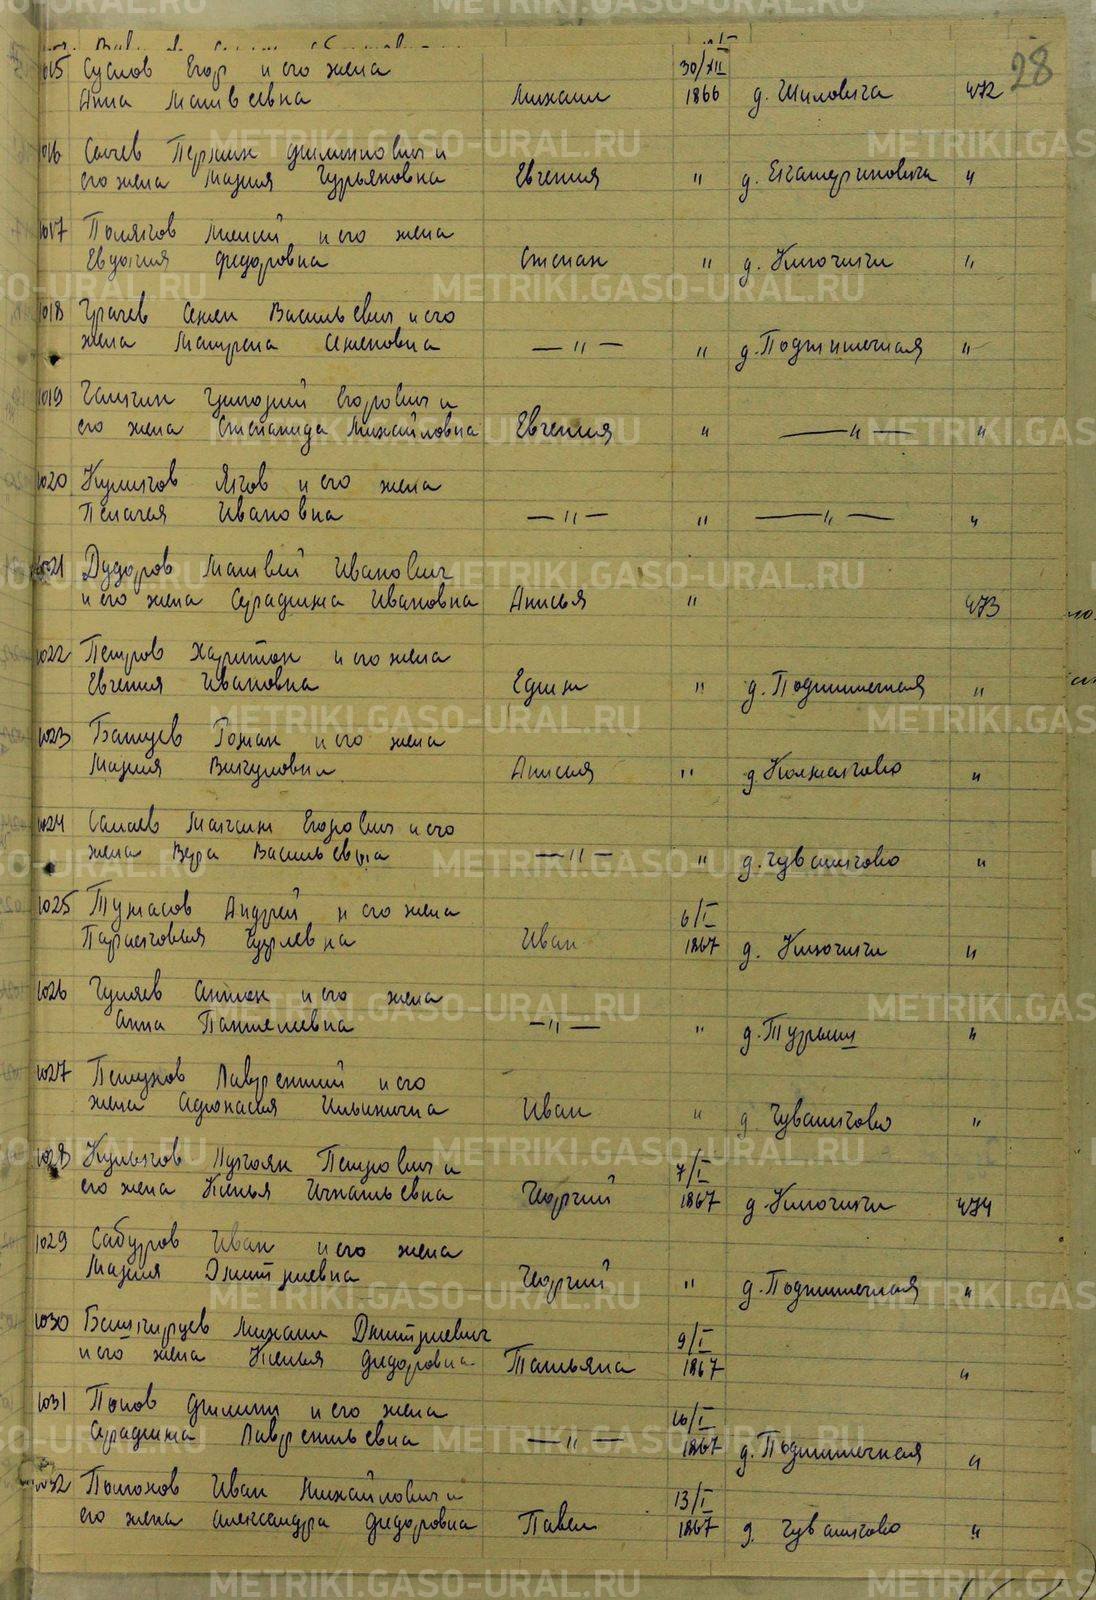 28
1015 Суслов Егор и его жена 30/XII
Анна Матвеевна Михаил 1866 д. Шиловича 472
1016 Сычев Филиппович и
его жена Мария Гурьяновна Евгения " д. Екатериновича "
1017 Поляков и его жена
Евдокия Федоровна Степан " д. Ключики "
1018 Грачев Семен Васильевич и его
жена Матрена Семеновна —"— " д. Подгишечная "
1019 Галкин Григорий Егорович и
его жена Степанида Михайловна Евгения " —"— "
1020 Куликов Яков и его жена
Пелагея Ивановна —"— " —"— "
1021 Дударов Матвей Иванович
и его жена Серафима Ивановна Анисья " 473
1022 Петров Харитон и его жена
Евгения Ивановна Ефим " д. Подгишечная "
1023 Роман и его жена
Мария Викуловна Анисья " д. Колмаково "
1024 Самаев Максим Егорович и его
жена Вера Васильевна —"— " д. Чувашково "
1025 Андрей и его жена 6/I
Парасковья Гурлевна Иван 1867 д. Ключики "
1026 Гуляев Антон и его жена
Анна Пантелевна —"— " д. Турыш "
1027 Петухов Лаврентий и его
жена Афонасия Ильинична Иван " д. Чувашково "
1028 Куликов Лукоян Петрович и 7/I
его жена Ксенья Игнатьевна Георгий 1867 д. Ключики 474
1029 Сабуров Иван и его жена
Мария Дмитриевна Георгий " д. Подгишечная "
1030 Башкирцев Михаил Дмитриевич 9/I
и его жена Ксенья Федоровна Татьяна 1867 "
1031 Попов Филипп и его жена 10/I
Серафима Лаврентьевна —"— 1867 д. Подгишечная "
1032 Иван Михайлович и 13/I
его жена Александра Федоровна Павел 1867 д. Чувашково "
METRIKI.GASO-URAL.RU